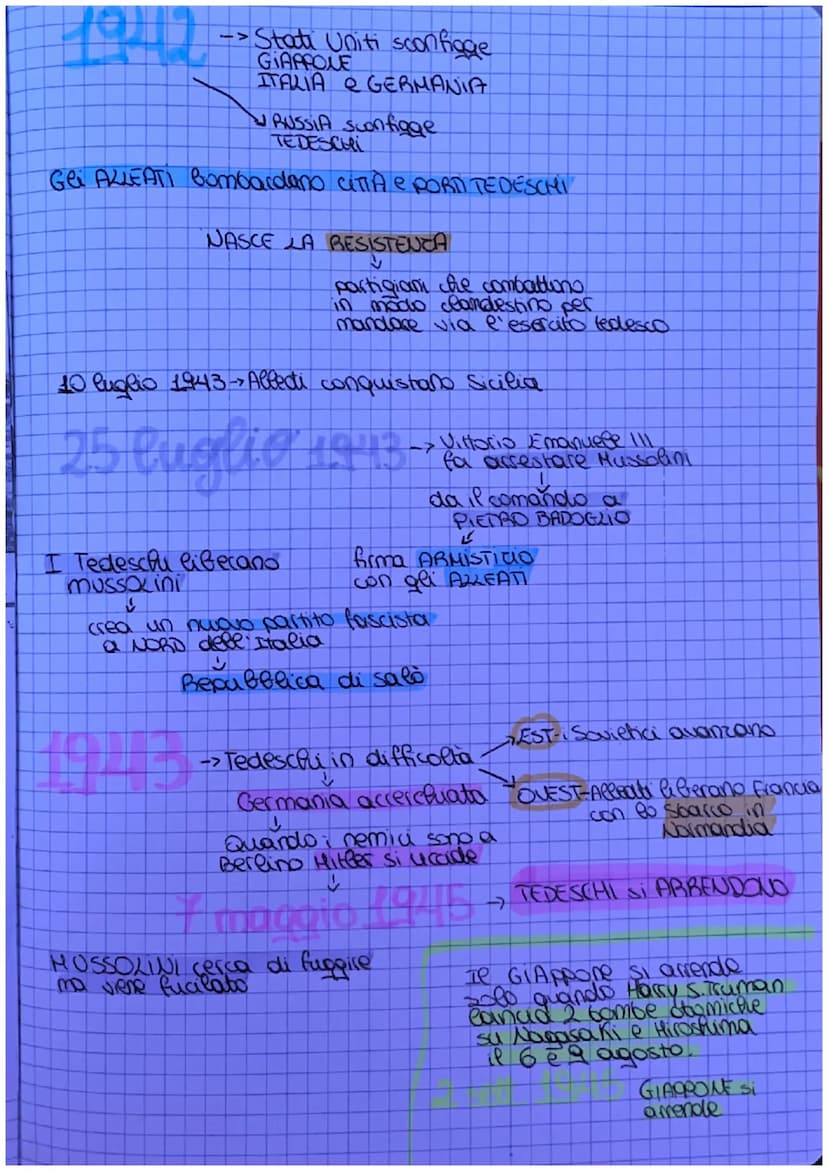 1942 -> Stati Uniti sconfigge
GIAPPONE
ITALIA e GERMANIA
RUSSIA sconfigge
TEDESCHI
Gli ALLEATI bombardano CITTÀ e PORTI TEDESCHI
NASCE LA RESISTENZA
partigiani che combattono
in modo clandestino per
mandare via l'esercito tedesco
10 luglio 1943 -> Alleati conquistano Sicilia
25 luglio 1943 -> Vittorio Emanuele III
fa arrestare Mussolini
da il comando a
PIETRO BADOGLIO
I Tedeschi liberano
mussolini
firma ARMISTIZIO
con gli ALLEATI
crea un nuovo partito fascista
a NORD dell'Italia
Repubblica di salò
1943 -> Tedeschi in difficoltà
EST-i Sovietici avanzano
Germania accerchiata
OVEST-Alleati liberano Francia
con lo sbarco in
Normandia
Quando i nemici sono a
Berlino Hitler si uccide
7 maggio 1945 -> TEDESCHI si ARRENDONO
MUSSOLINI cerca di fuggire
ma viene fucilato
Il GIAPPONE si arrende
solo quando Harry S. Truman
lancia 2 bombe atomiche
su Nagasaki e Hiroshima
il 6 e 9 agosto.
2 sett. 1945 GIAPPONE si
arrende